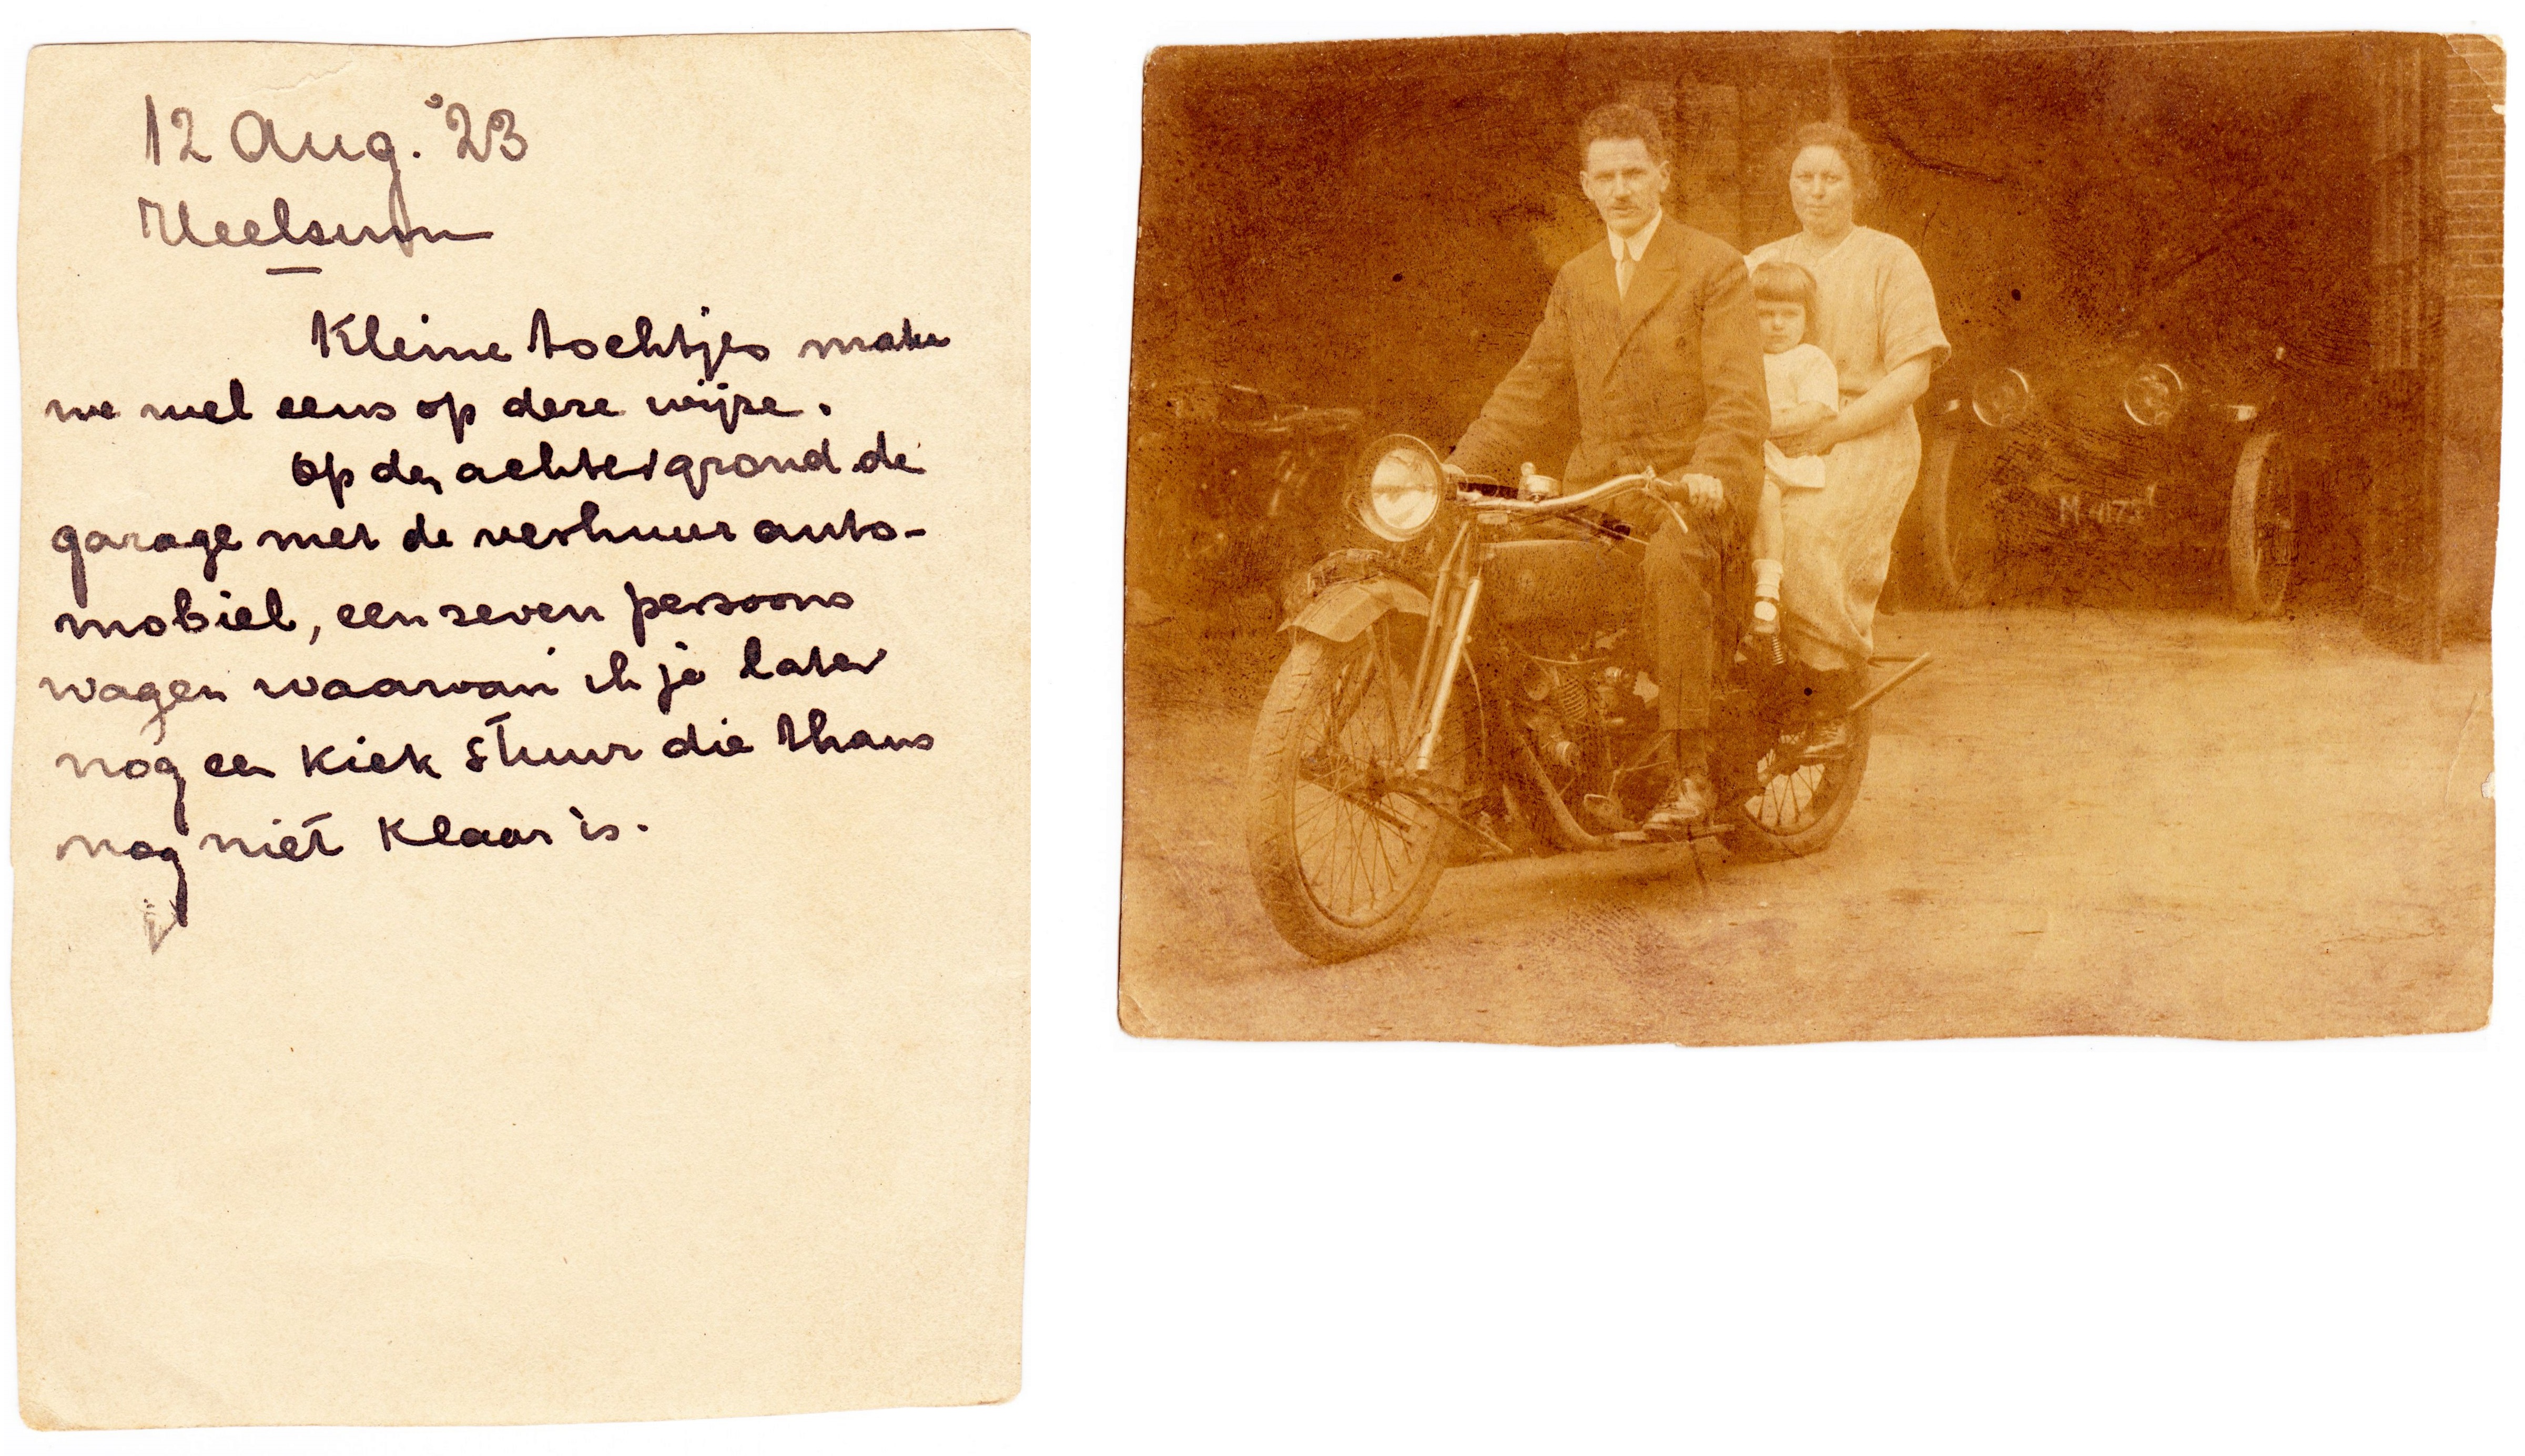 12 Aug. '23
Heelsum
Kleine tochtjes maken
we wel eens op deze wijze.
Op den achtergrond de
garage met de verhuur auto-
mobiel, een zeven persoons
wagen waarvan ik je later
nog een kiek stuur die thans
nog niet klaar is.